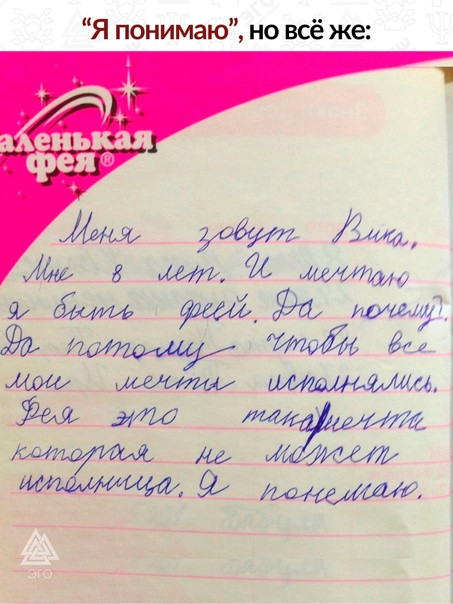 “Я понимаю”, но всё же:
аленькая
фея®
Меня зовут Вика.
Мне 8 лет. И мечтаю
я быть феей. Да почему?
Да потому чтобы все
мои мечти исполнялись.
Фея это така/мечта
которая не может
исполница. Я понемаю.
ЭГО